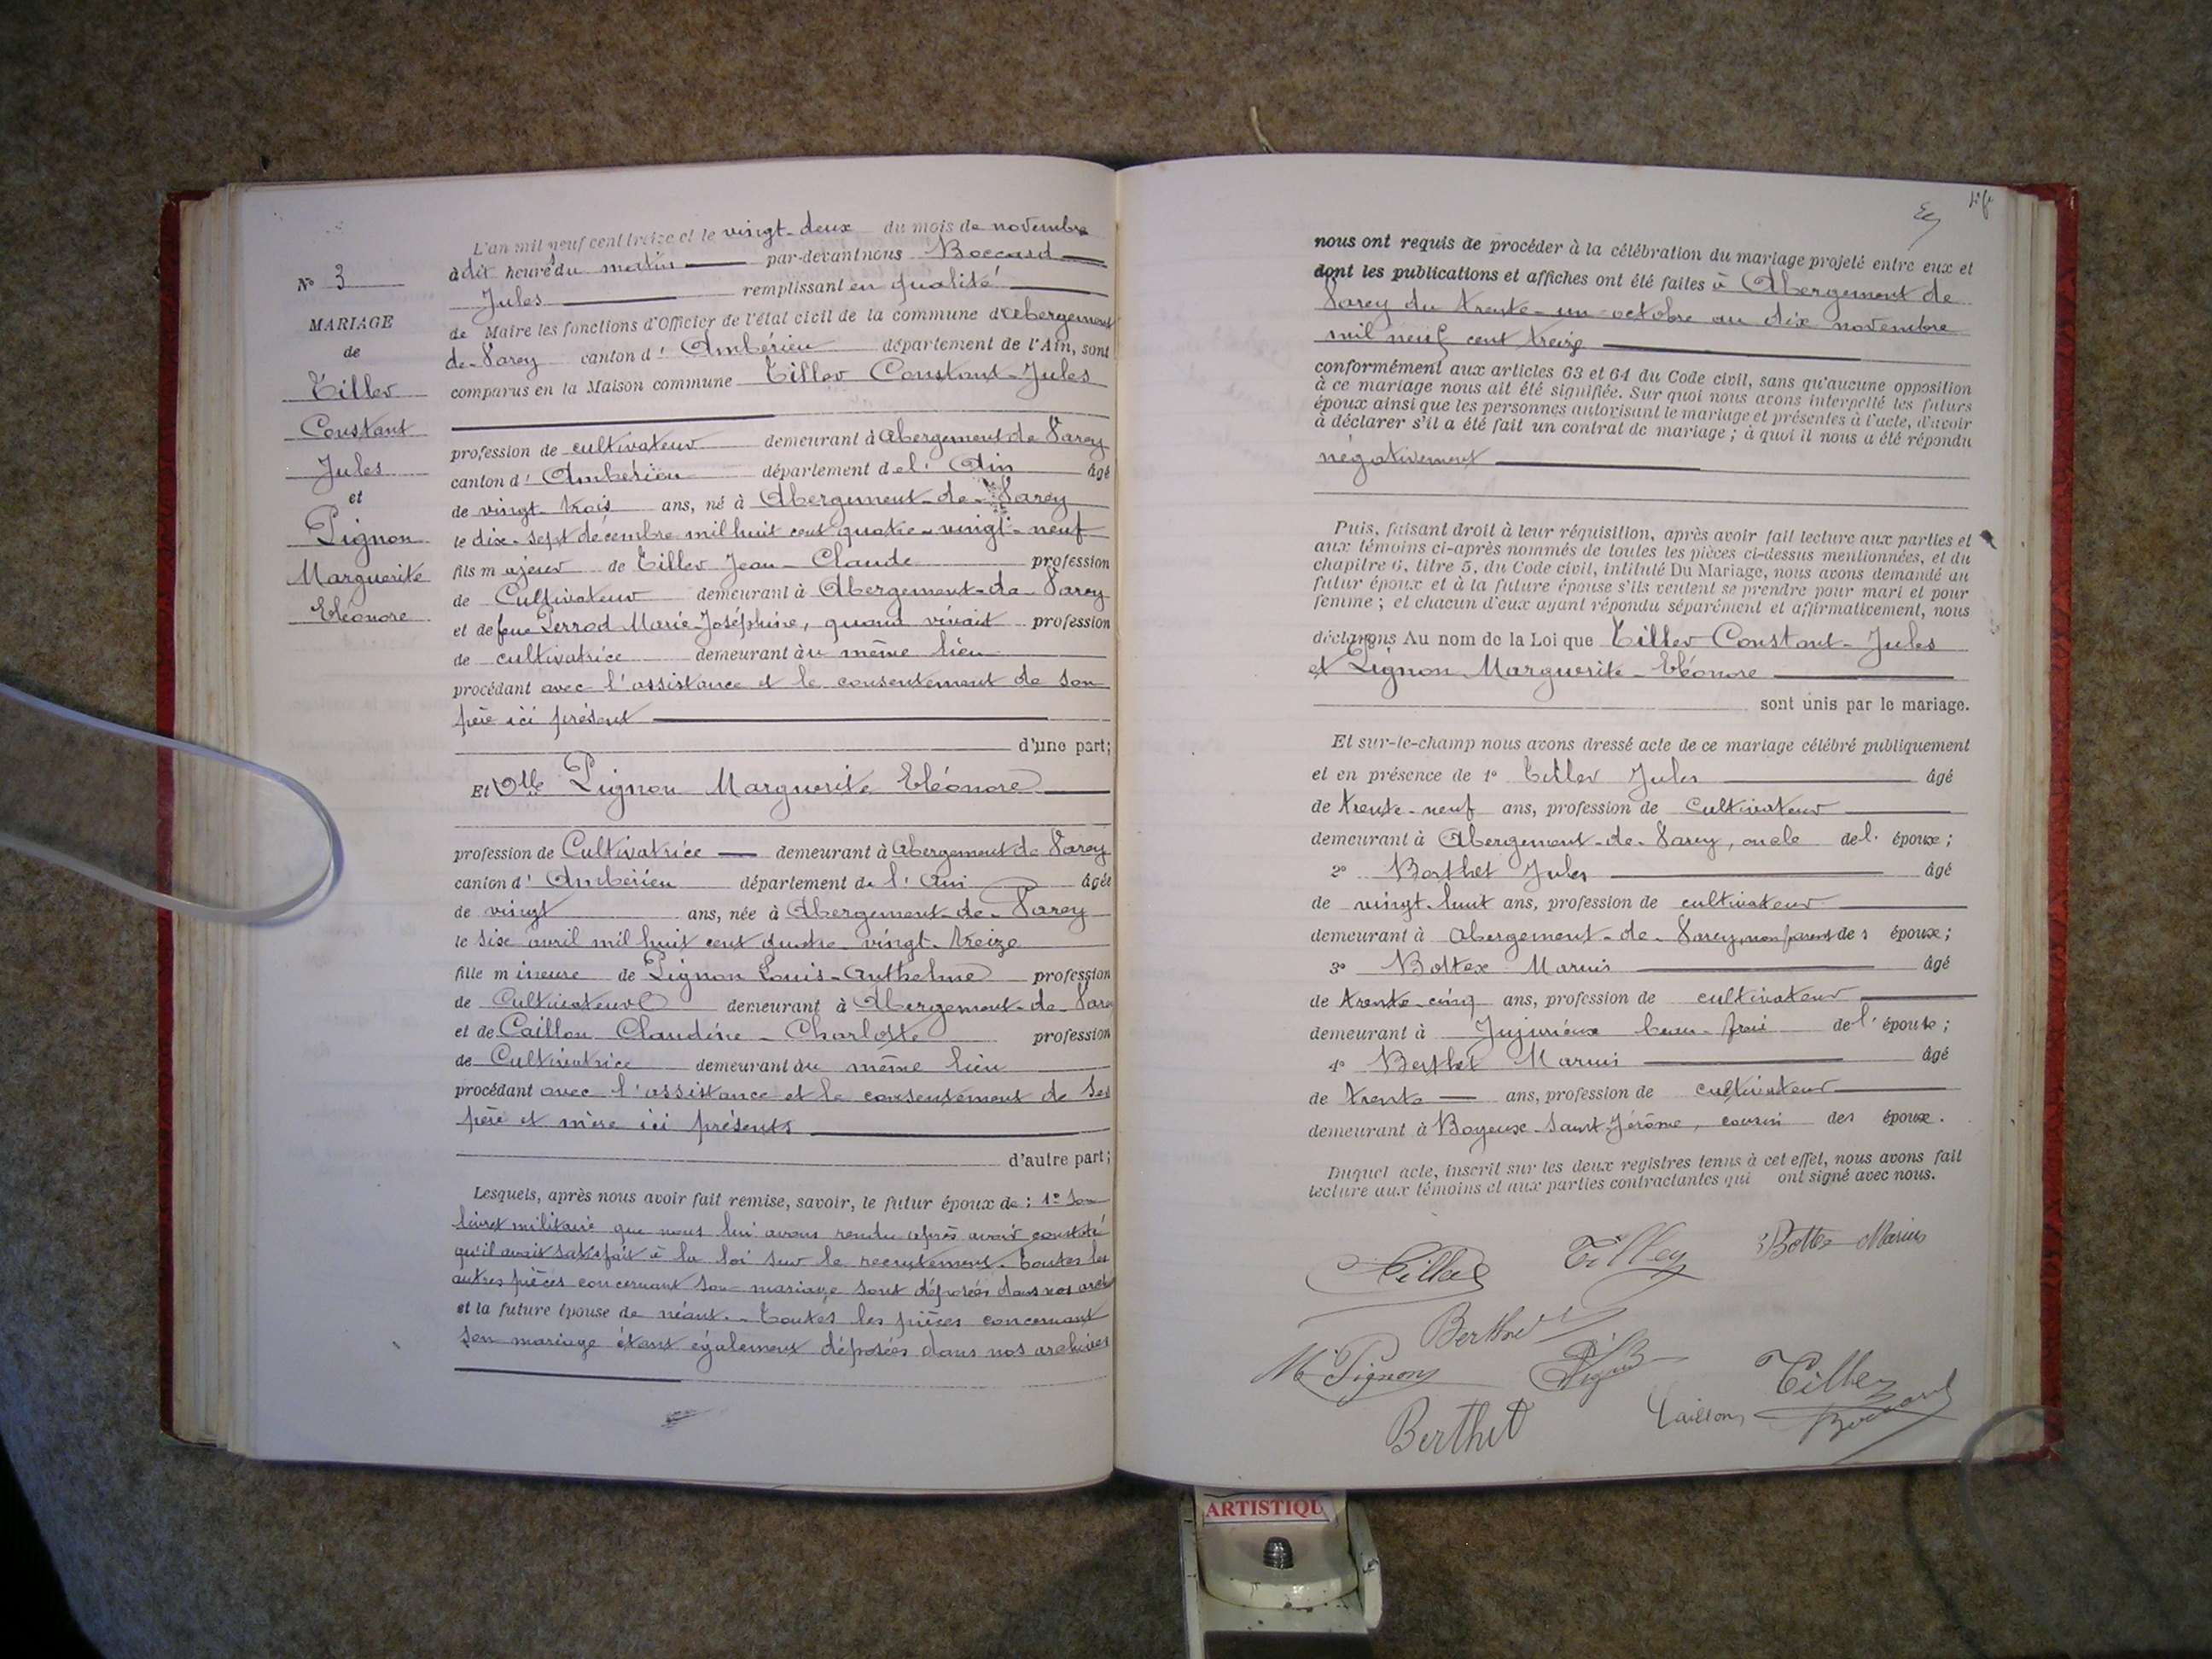 N° 3
MARIAGE
de
Tiller
Constant
Jules
et
Pignon
Marguerite
Eléonore
L'an mil neuf cent treize et le vingt-deux du mois de novembre
à dix heures du matin par-devant nous Boccard
Jules remplissant en qualité
de Maire les fonctions d'Officier de l'état civil de la commune d'Abergement
de-Varey canton d' Ambérieu département de l'Ain, sont
comparus en la Maison commune Tiller Constant-Jules
profession de cultivateur demeurant à Abergement de Varey
canton d' Ambérieu département de l' Ain âgé
de vingt-trois ans, né à Abergement-de-Varey
le dix-sept décembre mil huit cent quatre-vingt-neuf
fils majeur de Tiller Jean-Claude profession
de Cultivateur demeurant à Abergement-de-Varey
et de feue Perrod Marie-Joséphine, quand vivait profession
de cultivatrice demeurant au même lieu
procédant avec l'assistance et le consentement de son
père ici présent
d'une part;
Et Dlle Pignon Marguerite Eléonore
profession de Cultivatrice demeurant à Abergement de Varey
canton d' Ambérieu département de l' Ain âgée
de vingt ans, née à Abergement-de-Varey
le six avril mil huit cent quatre-vingt-treize
fille mineure de Pignon Louis-Anthelme profession
de Cultivateur demeurant à Abergement-de-Varey
et de Caillon Claudine-Charlotte profession
de Cultivatrice demeurant au même lieu
procédant avec l'assistance et le consentement de ses
père et mère ici présents
d'autre part;
Lesquels, après nous avoir fait remise, savoir, le futur époux de : 1° Son
livret militaire que nous lui avons rendu après avoir constaté
qu'il avait satisfait à la loi sur le recrutement. Toutes les
autres pièces concernant son mariage sont déposées dans nos arch
et la future épouse de néant. - Toutes les pièces concernant
son mariage étant également déposées dans nos archives
nous ont requis de procéder à la célébration du mariage projeté entre eux et
dont les publications et affiches ont été faites à Abergement de
Varey du trente-un octobre au dix novembre
mil neuf cent treize
conformément aux articles 63 et 64 du Code civil, sans qu'aucune opposition
à ce mariage nous ait été signifiée. Sur quoi nous avons interpellé les futurs
époux ainsi que les personnes autorisant le mariage et présentes à l'acte, d'avoir
à déclarer s'il a été fait un contrat de mariage ; à quoi il nous a été répondu
négativement
Puis, faisant droit à leur réquisition, après avoir fait lecture aux parties et
aux témoins ci-après nommés de toutes les pièces ci-dessus mentionnées, et du
chapitre 6, titre 5, du Code civil, intitulé Du Mariage, nous avons demandé au
futur époux et à la future épouse s'ils veulent se prendre pour mari et pour
femme ; et chacun d'eux ayant répondu séparément et affirmativement, nous
déclarons Au nom de la Loi que Tiller Constant-Jules
et Pignon Marguerite-Eléonore
sont unis par le mariage.
Et sur-le-champ nous avons dressé acte de ce mariage célébré publiquement
et en présence de 1° Tiller Jules âgé
de trente-neuf ans, profession de cultivateur
demeurant à Abergement-de-Varey, oncle de l' époux ;
2° Berthet Jules âgé
de vingt-huit ans, profession de cultivateur
demeurant à Abergement-de-Varey, non parent des époux ;
3° Bottex Marius âgé
de trente-cinq ans, profession de cultivateur
demeurant à Jujurieux beau-frère de l' épouse ;
4° Berthet Marius âgé
de trente ans, profession de cultivateur
demeurant à Boyeux-Saint-Jérôme, cousin des époux.
Duquel acte, inscrit sur les deux registres tenus à cet effet, nous avons fait
lecture aux témoins et aux parties contractantes qui ont signé avec nous.
Tiller Tiller Bottex Marius
Berthet
M Pignon Pignon Tiller
Berthet Caillon Boccard
ARTISTIQU